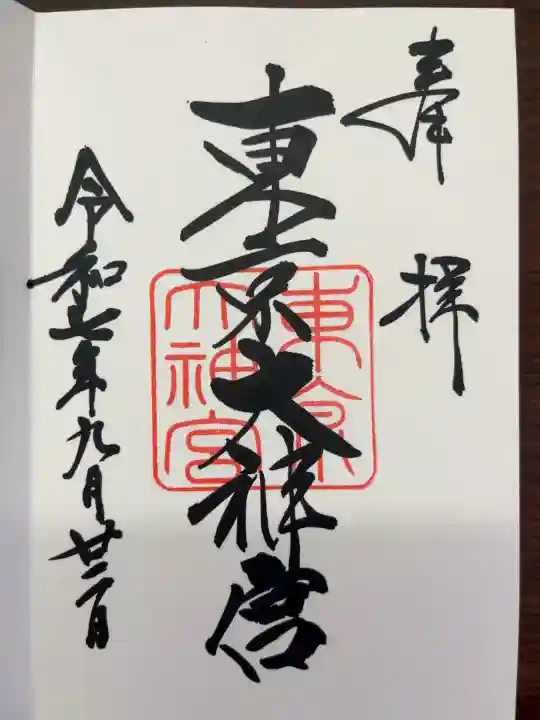 奉拝
東京大神宮
東京
大神宮
令和七年九月廿二日